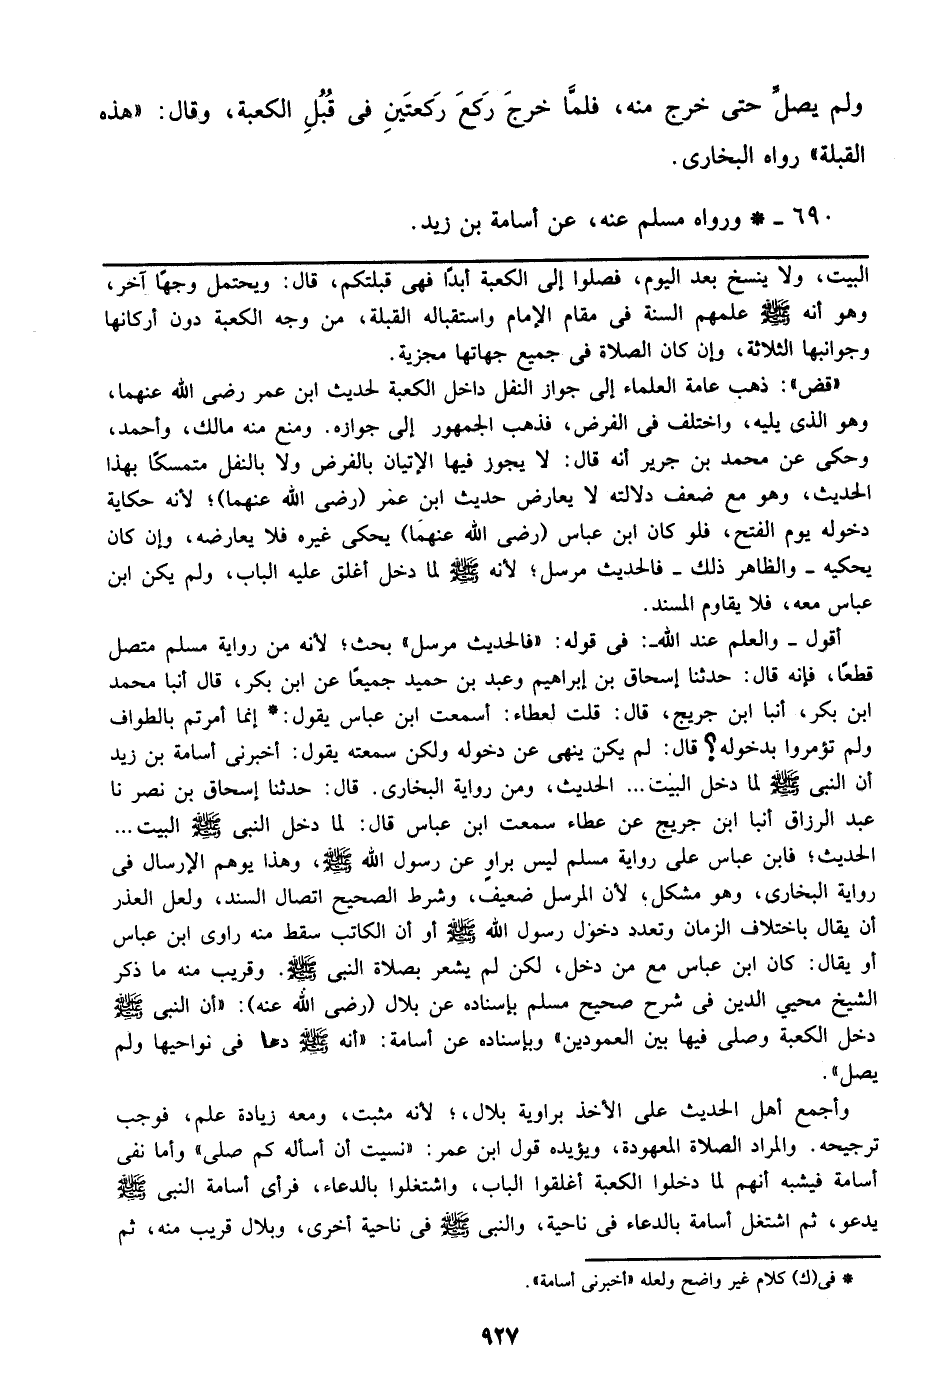 ولم يصلِّ حتى خرج منه، فلمَّا خرجَ رَكعَ رَكعتَينِ فى قُبُلِ الكعبة، وقال: «هذه
القبلة» رواه البخارى.
٦٩٠ ـ * ورواه مسلم عنه، عن أسامة بن زيد.
البيت، ولا ينسخ بعد اليوم، فصلوا إلى الكعبة أبدًا فهى قبلتكم، قال: ويحتمل وجهًا آخر،
وهو أنه ﷺ علمهم السنة فى مقام الإمام واستقباله القبلة، من وجه الكعبة دون أركانها
وجوانبها الثلاثة، وإن كان الصلاة فى جميع جهاتها مجزية.
«قض»: ذهب عامة العلماء إلى جواز النفل داخل الكعبة لحديث ابن عمر رضى الله عنهما،
وهو الذى يليه، واختلف فى الفرض، فذهب الجمهور إلى جوازه. ومنع منه مالك، وأحمد،
وحكى عن محمد بن جرير أنه قال: لا يجوز فيها الإتيان بالفرض ولا بالنفل متمسكًا بهذا
الحديث، وهو مع ضعف دلالته لا يعارض حديث ابن عمر (رضى الله عنهما)؛ لأنه حكاية
دخوله يوم الفتح، فلو كان ابن عباس (رضى الله عنهما) يحكى غيره فلا يعارضه، وإن كان
يحكيه ـ والظاهر ذلك ـ فالحديث مرسل؛ لأنه ﷺ لما دخل أغلق عليه الباب، ولم يكن ابن
عباس معه، فلا يقاوم المسند.
أقول ـ والعلم عند اللهـ: فى قوله: «فالحديث مرسل» بحث؛ لأنه من رواية مسلم متصل
قطعًا، فإنه قال: حدثنا إسحاق بن إبراهيم وعبد بن حميد جميعًا عن ابن بكر، قال أنبا محمد
ابن بكر، أنبا ابن جريج، قال: قلت لعطاء: أسمعت ابن عباس يقول:* إنما أمرتم بالطواف
ولم تؤمروا بدخوله؟ قال: لم يكن ينهى عن دخوله ولكن سمعته يقول: أخبرنى أسامة بن زيد
أن النبى ﷺ لما دخل البيت... الحديث، ومن رواية البخارى. قال: حدثنا إسحاق بن نصر نا
عبد الرزاق أنبا ابن جريج عن عطاء سمعت ابن عباس قال: لما دخل النبى ﷺ البيت...
الحديث؛ فابن عباس على رواية مسلم ليس براوٍ عن رسول الله ﷺ، وهذا يوهم الإرسال فى
رواية البخارى، وهو مشكل؛ لأن المرسل ضعيف، وشرط الصحيح اتصال السند، ولعل العذر
أن يقال باختلاف الزمان وتعدد دخول رسول الله ﷺ أو أن الكاتب سقط منه راوى ابن عباس
أو يقال: كان ابن عباس مع من دخل، لكن لم يشعر بصلاة النبى ﷺ. وقريب منه ما ذكر
الشيخ محيي الدين فى شرح صحيح مسلم بإسناده عن بلال (رضى الله عنه): «أن النبى ﷺ
دخل الكعبة وصلى فيها بين العمودين» وبإسناده عن أسامة: «أنه ﷺ دعا فى نواحيها ولم
يصل».
وأجمع أهل الحديث على الأخذ براوية بلال،؛ لأنه مثبت، ومعه زيادة علم، فوجب
ترجيحه. والمراد الصلاة المعهودة، ويؤيده قول ابن عمر: «نسيت أن أسأله كم صلى» وأما نفى
أسامة فيشبه أنهم لما دخلوا الكعبة أغلقوا الباب، واشتغلوا بالدعاء، فرأى أسامة النبى ﷺ
يدعو، ثم اشتغل أسامة بالدعاء فى ناحية، والنبى ﷺ فى ناحية أخرى، وبلال قريب منه، ثم
* فى(ك) كلام غير واضح ولعله «أخبرنى أسامة».
٩٢٧